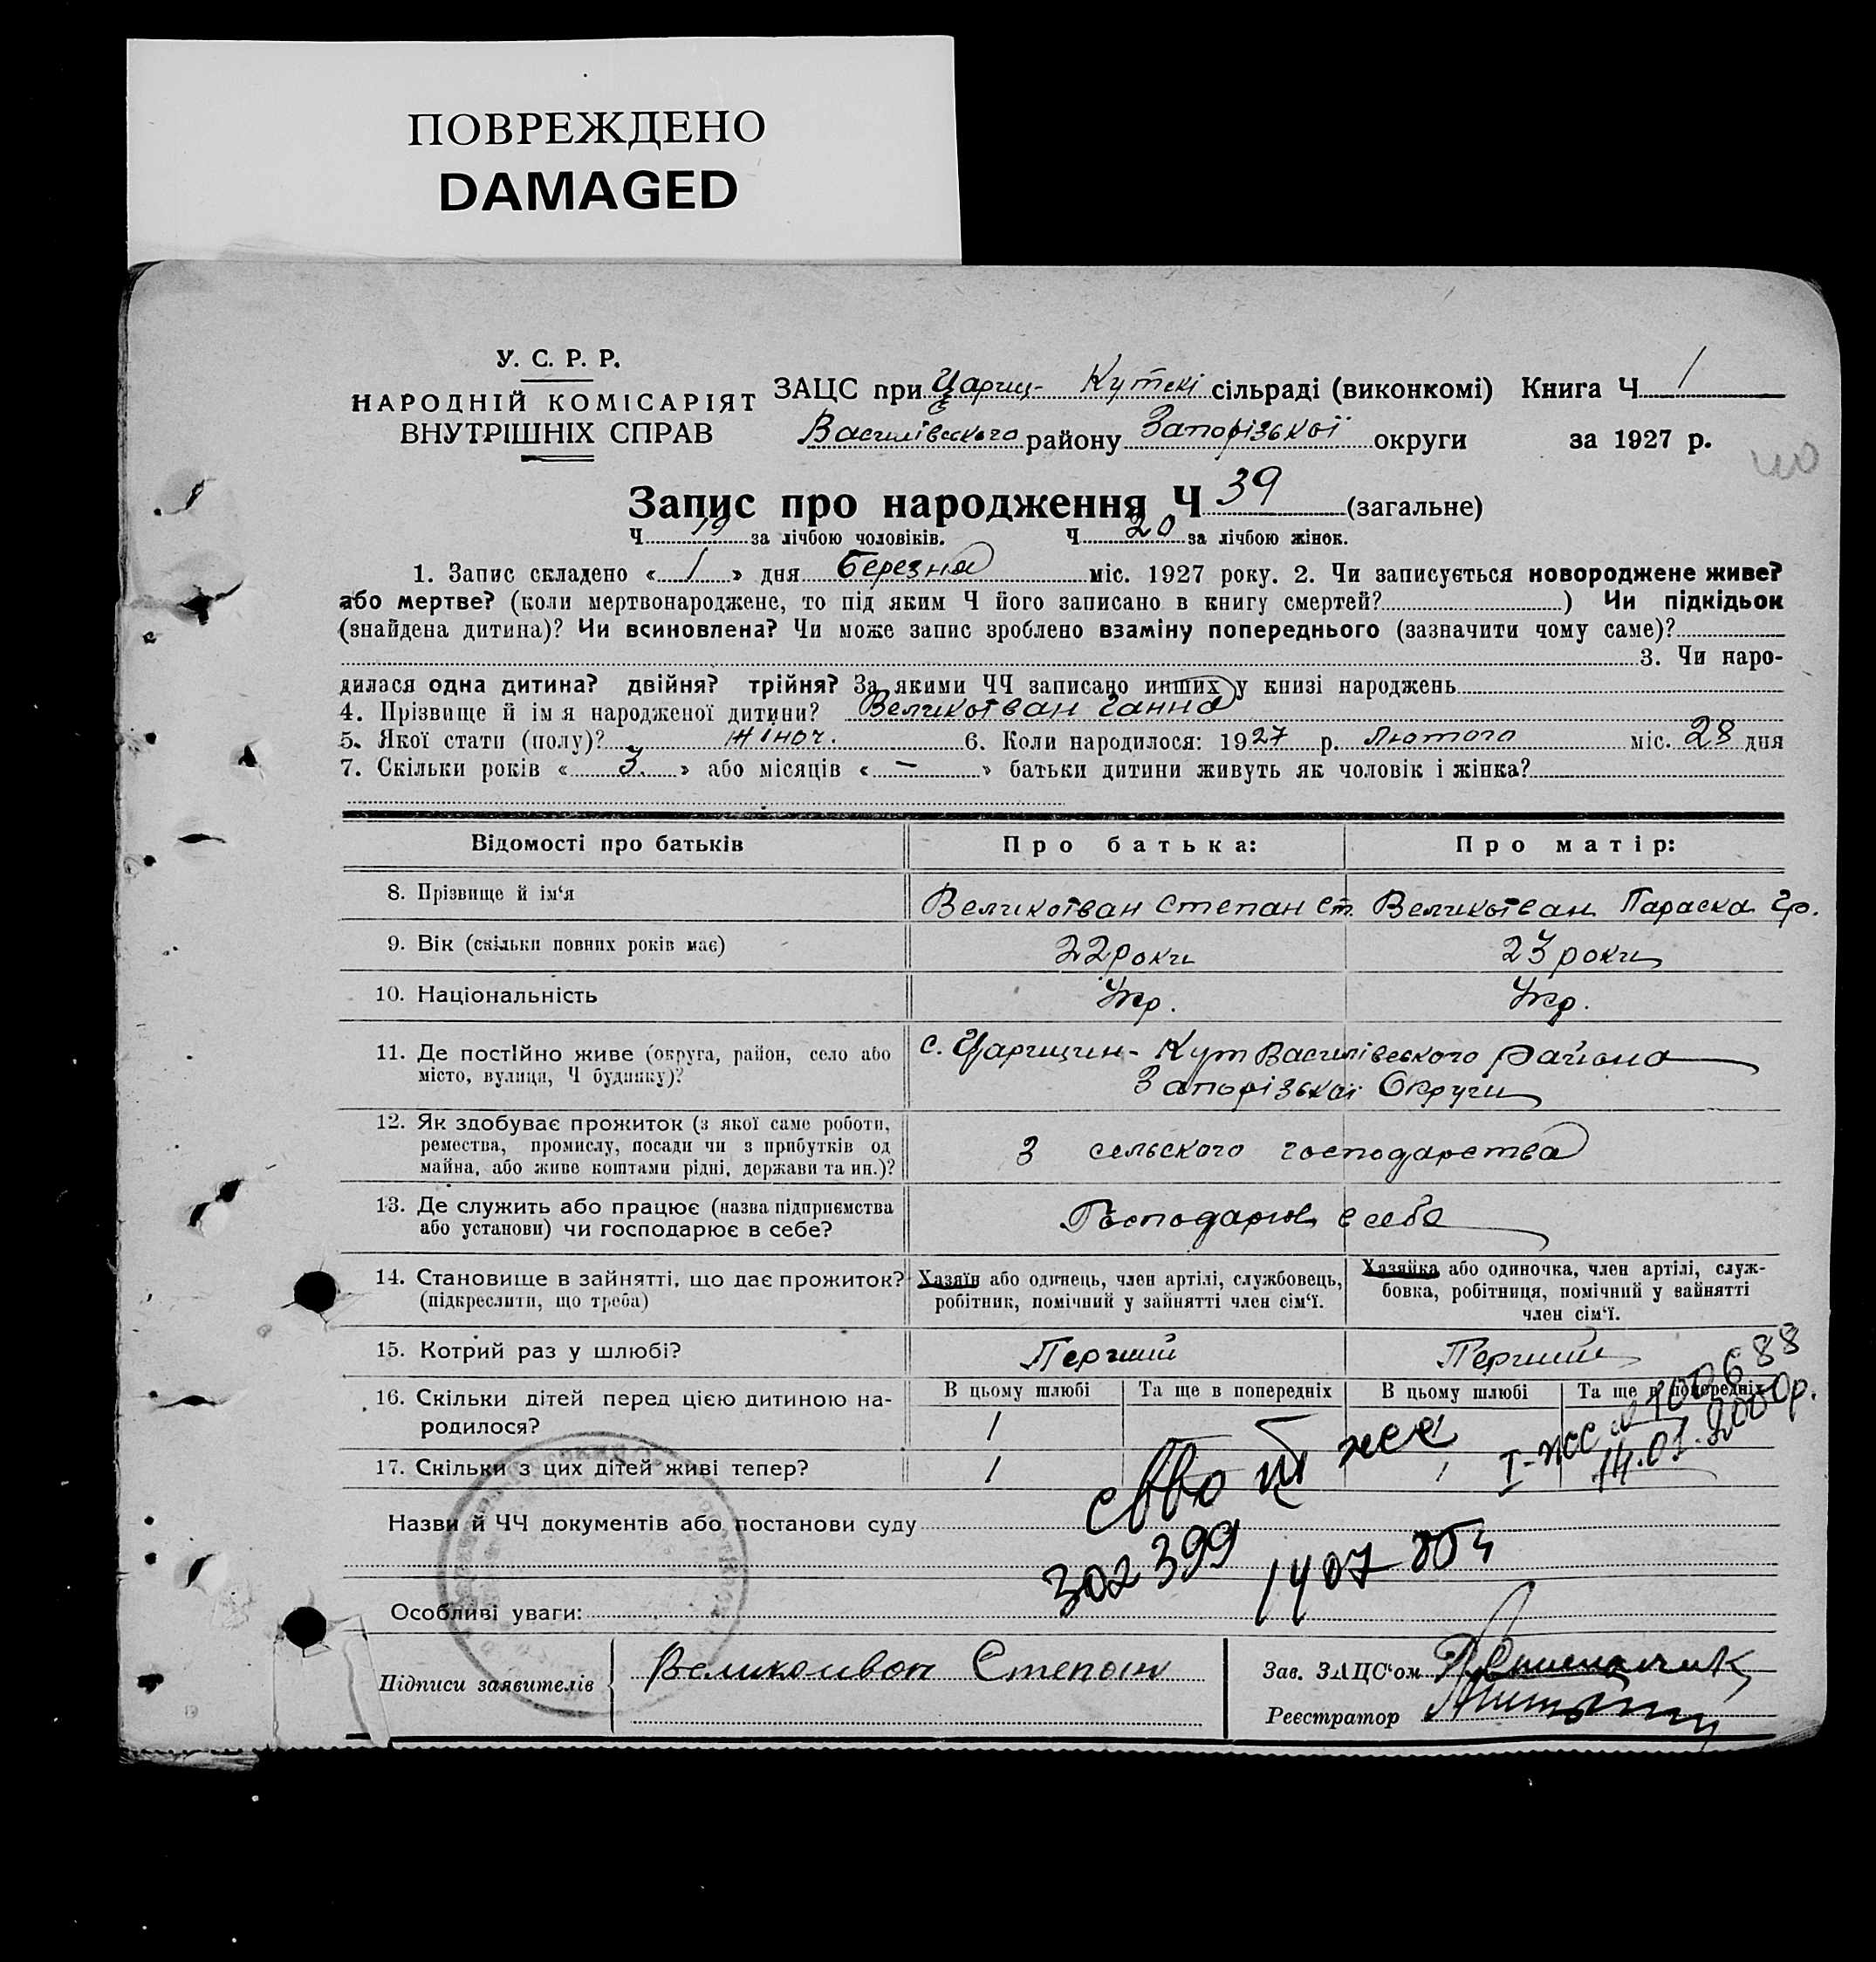 ПОВРЕЖДЕНО
DAMAGED
У. С. Р. Р.
НАРОДНІЙ КОМІСАРІЯТ
ВНУТРІШНІХ СПРАВ
ЗАЦС при Цариц- Кутскі сільраді (виконкомі) Книга Ч 1
Василівського району Запорізької округи за 1927 р.
Запис про народження Ч 39 (загальне)
Ч 19 за лічбою чоловіків. Ч 20 за лічбою жінок.
1. Запис складено « 1 » дня Березня міс. 1927 року. 2. Чи записується новороджене живе?
або мертве? (коли мертвонароджене, то під яким Ч його записано в книгу смертей? ) Чи підкідьок
(знайдена дитина)? Чи всиновлена? Чи може запис зроблено взаміну попереднього (зазначити чому саме)?
3. Чи наро-
дилася одна дитина? двійня? трійня? За якими ЧЧ записано инших у книзі народжень
4. Прізвище й ім я народженої дитини? Великоіван Ганна
5. Якої стати (полу)? жіноч. 6. Коли народилося: 1927 р. Лютого міс. 28 дня
7. Скільки років « 3 » або місяців « – » батьки дитини живуть як чоловік і жінка?
Відомості про батьків Про батька: Про матір:
8. Прізвище й ім‘я Великоіван Степан Ст. Великоіван Параска Гр.
9. Вік (скільки повних років має) 22 роки 23 роки
10. Національність Укр. Укр.
11. Де постійно живе (округа, район, село або
місто, вулиця, Ч будинку)?
с. Царицин-Кут Василівського района
Запорізької Округи
12. Як здобуває прожиток (з якої саме роботи,
ремества, промислу, посади чи з прибутків од
майна, або живе коштами рідні, держави та ин.)?
З сельского господарства
13. Де служить або працює (назва підприємства
або установи) чи господарює в себе?
Господарює в себе
14. Становище в зайнятті, що дає прожиток?
(підкреслити, що треба)
Хазяїн або одинець, член артілі, службовець,
робітник, помічний у зайнятті член сім‘ї.
Хазяйка або одиночка, член артілі, служ-
бовка, робітниця, помічний у зайнятті
член сім‘ї.
15. Котрий раз у шлюбі? Перший Перший
16. Скільки дітей перед цією дитиною на-
родилося?
В цьому шлюбі Та ще в попередніх В цьому шлюбі Та ще в попередніх
1
17. Скільки з цих дітей живі тепер? 1 1
100688
14.01.2000р.
Назви й ЧЧ документів або постанови суду
302399 1407
Особливі уваги:
Підписи заявителів Великоиван Степан
Зав. ЗАЦС‘ом
Реєстратор